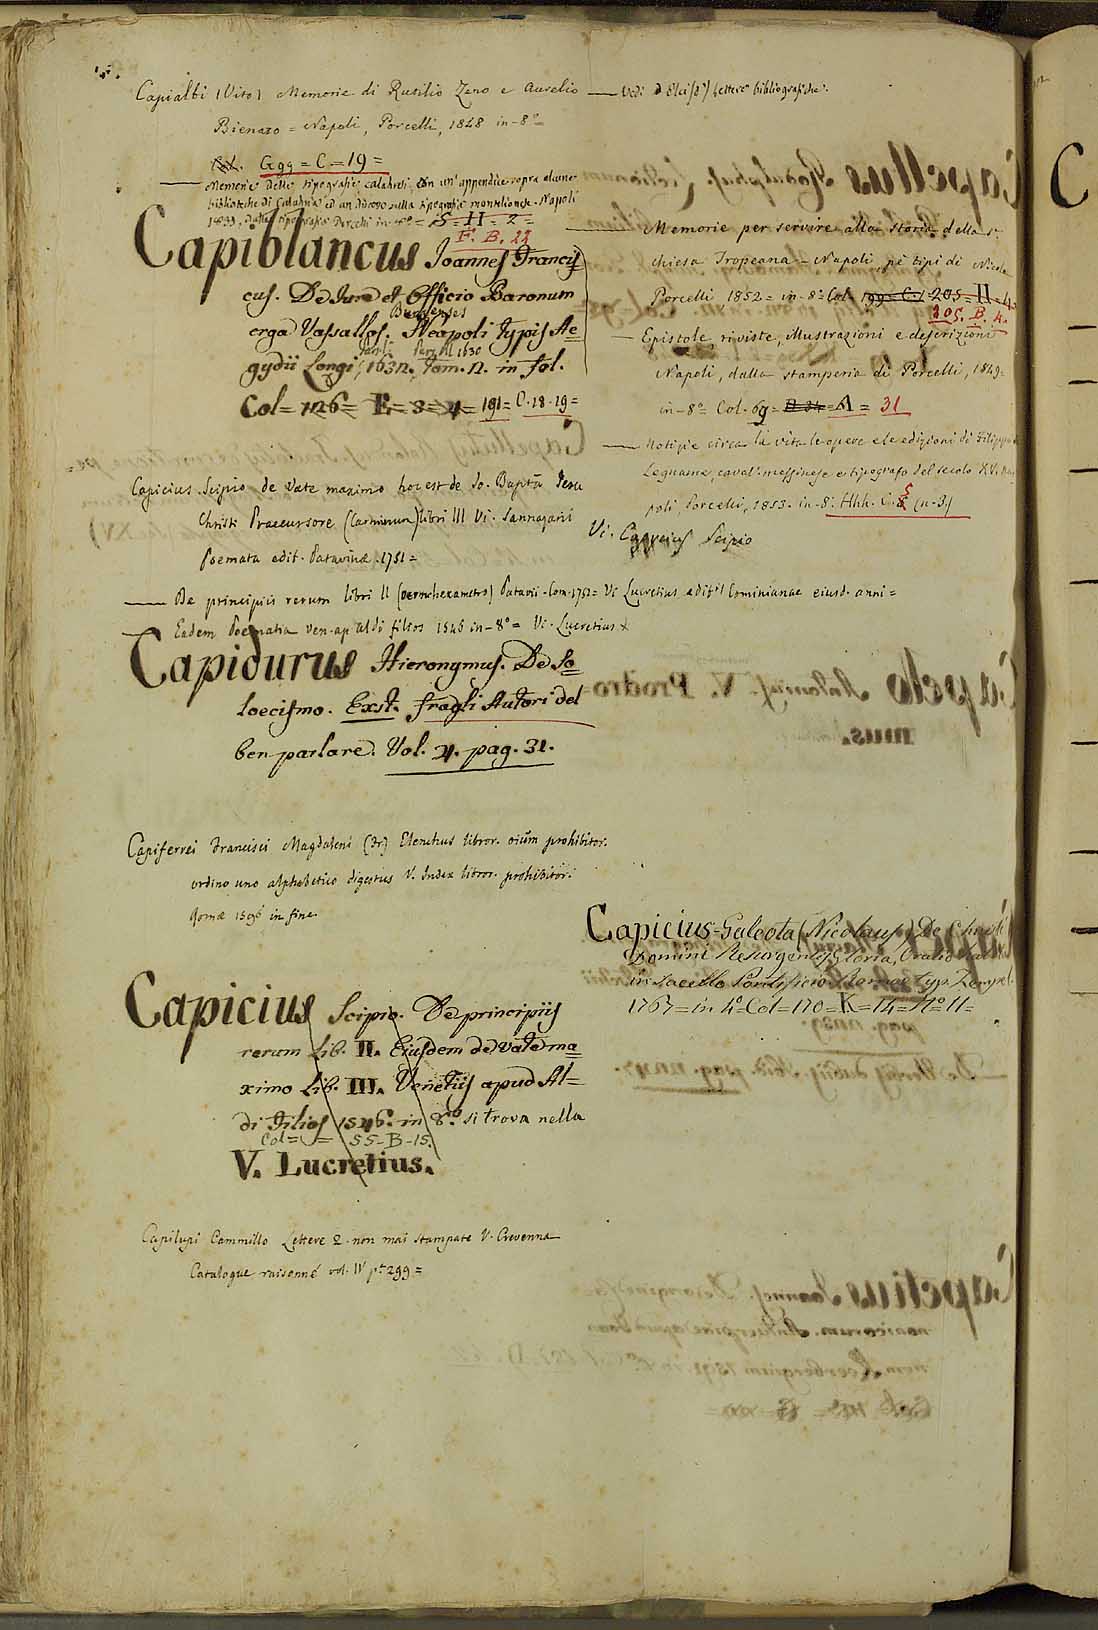 Capialbi (Vito) Memorie di Rutilio Zeno e Aurelio
Bienato = Napoli, Porcelli, 1848 in-8º
Col. Ggg = C = 19 =
— Memorie delle tipografie calabresi, con un'appendice sopra alcune
biblioteche di Calabria ed un discorso sulla tipografia monteleonese. Napoli
Porcelli in-8º = S = II = 2 =
F. B. 22
Capiblancus Joannes Francis
cus. De Jure et Officio Baronum
Burgenses
erga Vassallos. Neapoli Typis Ae
gydii Longi, 1632, Tom. 2. in fol.
Col = 126 = E = 3 = 4 = 191 = C. 18. 19 =
Capicius Scipio de Vate maximo hoc est de Jo. Baptā Jesu
Christi Praecursore (Carminum) libri III Vi. Sannazarii
Poemata edit. Patavinæ. 1751 =
— De principiis rerum libri II (versu hexametro) Patavii. Com. 1751 = Vi Lucretius edit. Cominianae eiusd. anni =
Eadem Poematia Ven. ap Aldi filios 1546 in-8º = Vi. Lucretius
Capidurus Hieronymus. De So
loecismo. Exst. fragli Autori del
ben parlare. Vol. 4. pag. 31.
Capiferrei Francisci Magdaleni (Fr) Elenchus libror. oium prohibitor.
ordine uno alphabetico digestus V. Index libror. prohibitor.
Romæ 1596 in fine
Capicius Scipio. De principiis
rerum Lib. II. Ejusdem de Vate ma
ximo Lib. III. Venetiis apud Al=
di Filios 1546. in 8º si trova nella
Col = = 55-B-15.
V. Lucretius.
Capilupi Cammillo Lettere 2. non mai stampate V. Crevenna
Catalogue raisonné vol. IV p. 299 =
— Vedi D'Elci lettere bibliografiche.
— Memorie per servire alla storia della
chiesa Tropeana — Napoli, pe' tipi di Nicola
Porcelli 1852 = in-8º Col. 199 = C. 1 205 = II = 4
205. B. 4.
— Epistole, riviste, illustrazioni e descrizioni
Napoli, dalla stamperia di Porcelli, 1849 =
in-8º Col. 69 = B 34 = A = 31
— Notizie circa la vita le opere e le edizioni di Filippo
Legname, caval. messinese e tipografo del secolo XV, Na
poli, Porcelli, 1853. in-8. Hhh. C. 5 (n-3)
Vi. Capycius Scipio
Capicius-Galeota (Nicolaus) De Christi
Domini Resurgentis Gloria, Oratio
in Sacello Pontificio Romæ typ. Zempel.
1767 = in 4º Col = 170 = K = 14 = Nº 11 =